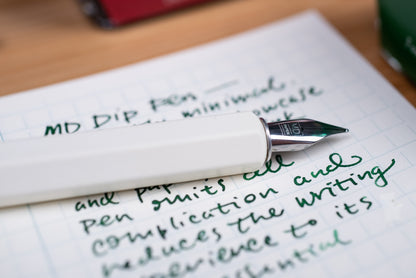 MD DIP Pen —
minimal
and
pen omits all and
complication and
reduces the writing
experience to its
essential